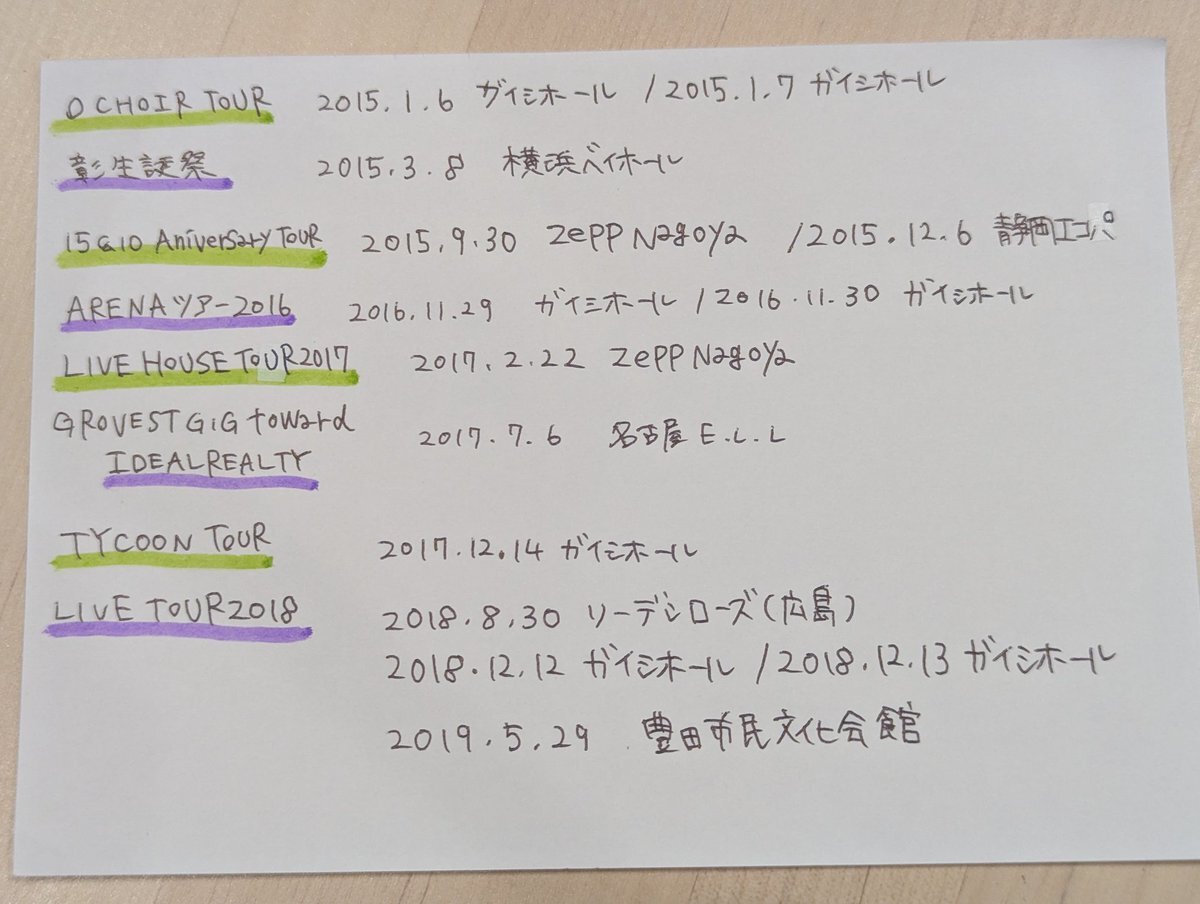 O CHOIR TOUR 2015.1.6 ガイシホール / 2015.1.7 ガイシホール
彰生誕祭 2015.3.8 横浜ベイホール
15&10 Aniversary TOUR 2015.9.30 Zepp Nagoya / 2015.12.6 静岡エコパ
ARENAツアー2016 2016.11.29 ガイシホール / 2016.11.30 ガイシホール
LIVE HOUSE TOUR 2017 2017.2.22 Zepp Nagoya
GROVEST GIG toward
IDEALREALTY 2017.7.6 名古屋 E.L.L
TYCOON TOUR 2017.12.14 ガイシホール
LIVE TOUR 2018 2018.8.30 リーデンローズ(広島)
2018.12.12 ガイシホール / 2018.12.13 ガイシホール
2019.5.29 豊田市民文化会館